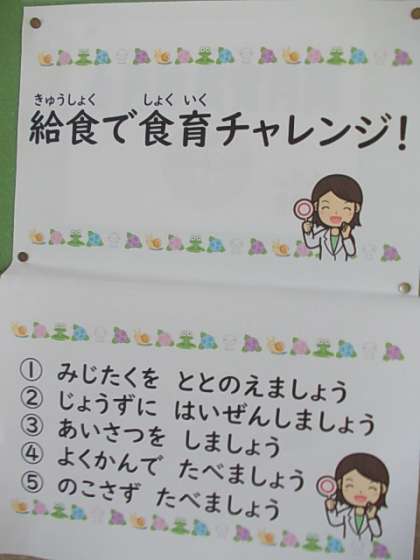 きゅうしょく しょく いく
給食で食育チャレンジ！
① みじたくを ととのえましょう
② じょうずに はいぜんしましょう
③ あいさつを しましょう
④ よくかんで たべましょう
⑤ のこさず たべましょう